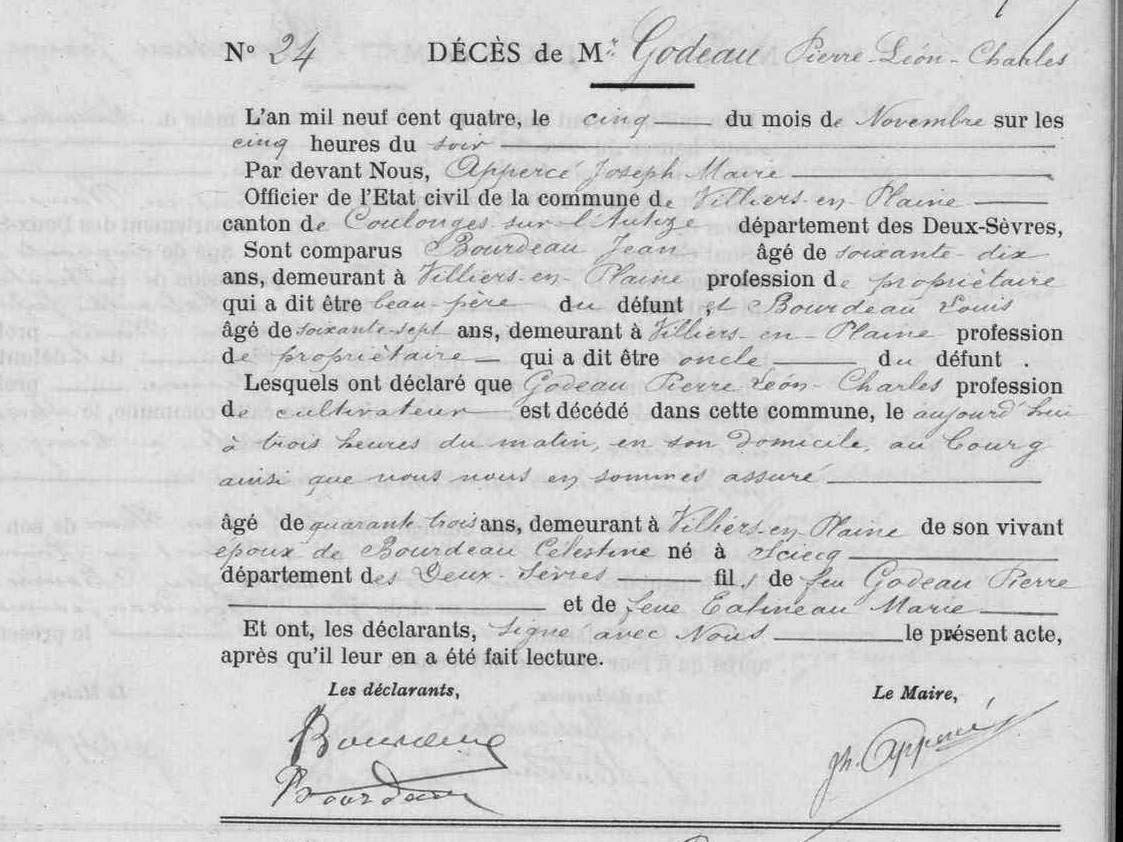 N° 24 DÉCÈS de Mr. Godeau Pierre-Léon-Charles
L'an mil neuf cent quatre, le cinq du mois de Novembre sur les
cinq heures du soir
Par devant Nous, Appercé Joseph Maire
Officier de l'Etat civil de la commune de Villiers-en-Plaine
canton de Coulonges sur l'Autize département des Deux-Sèvres,
Sont comparus Bourdeau Jean âgé de soixante-dix
ans, demeurant à Villiers-en-Plaine profession de propriétaire
qui a dit être beau-père du défunt, et Bourdeau Louis
âgé de soixante-sept ans, demeurant à Villiers-en-Plaine profession
de propriètaire qui a dit être oncle du défunt.
Lesquels ont déclaré que Godeau Pierre Léon-Charles profession
de cultivateur est décédé dans cette commune, le aujourd'hui
à trois heures du matin, en son domicile, au bourg
ainsi que nous nous en sommes assuré
âgé de quarante-trois ans, demeurant à Villiers-en-Plaine de son vivant
époux de Bourdeau Célestine né à Sciecq
département des Deux-Sèvres fils de feu Godeau Pierre
et de feue Marie
Et ont, les déclarants, signé avec Nous le présent acte,
après qu'il leur en a été fait lecture.
Les déclarants, Le Maire,
Bourdeau
Bourdeau Jh. Appercé